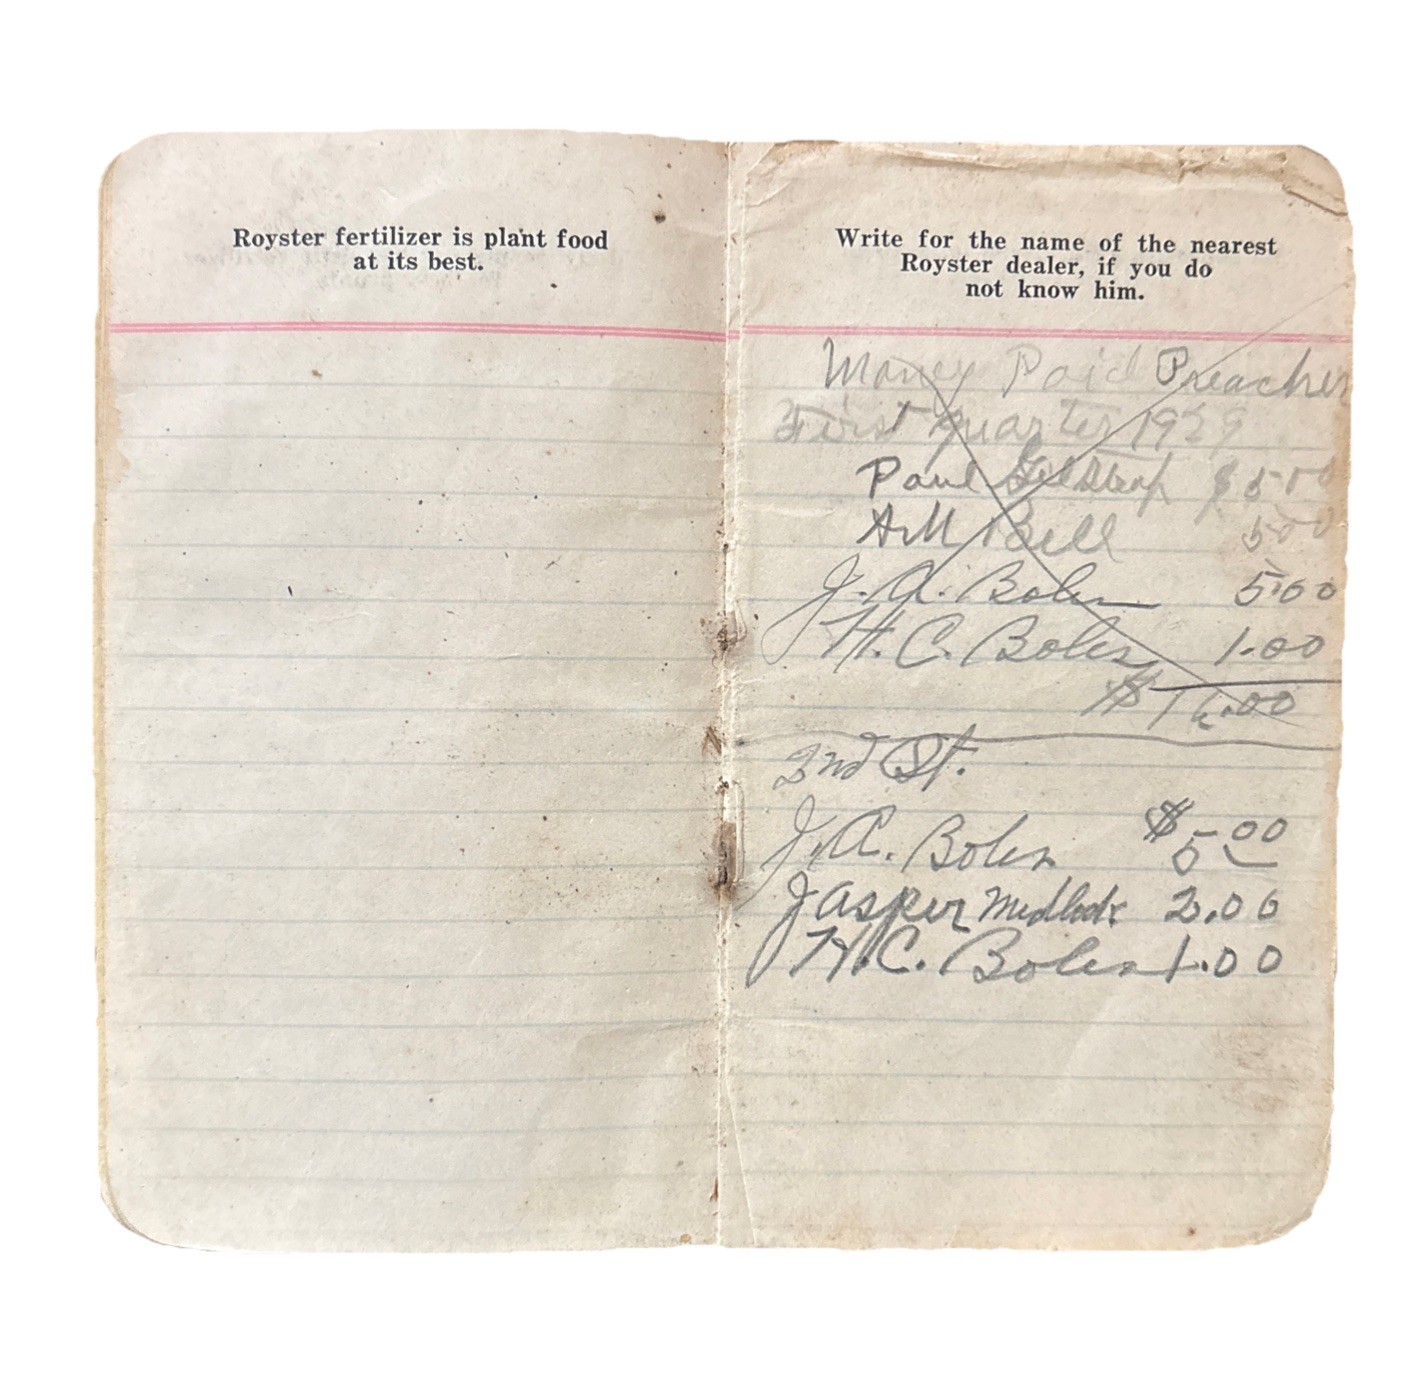 Royster fertilizer is plant food
at its best.
Write for the name of the nearest
Royster dealer, if you do
not know him.
Money Paid Preacher
First Quarter 1929
Paul Gilstrap $5.00
A.M. Bell 5.00
J. A. Boles 5.00
H. C. Boles 1.00
$16.00
2nd Qt.
J. A. Boles $5.00
Jasper Medlock 2.00
H. C. Boles 1.00